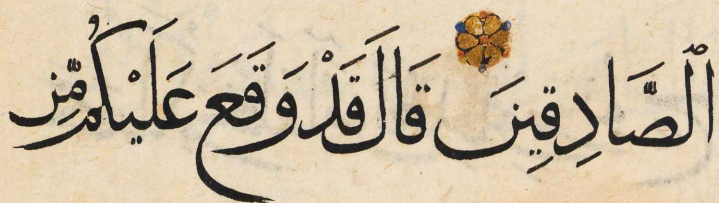 ٱلصَّادِقِينَ قَالَ قَدْ وَقَعَ عَلَيْكُم مِّن